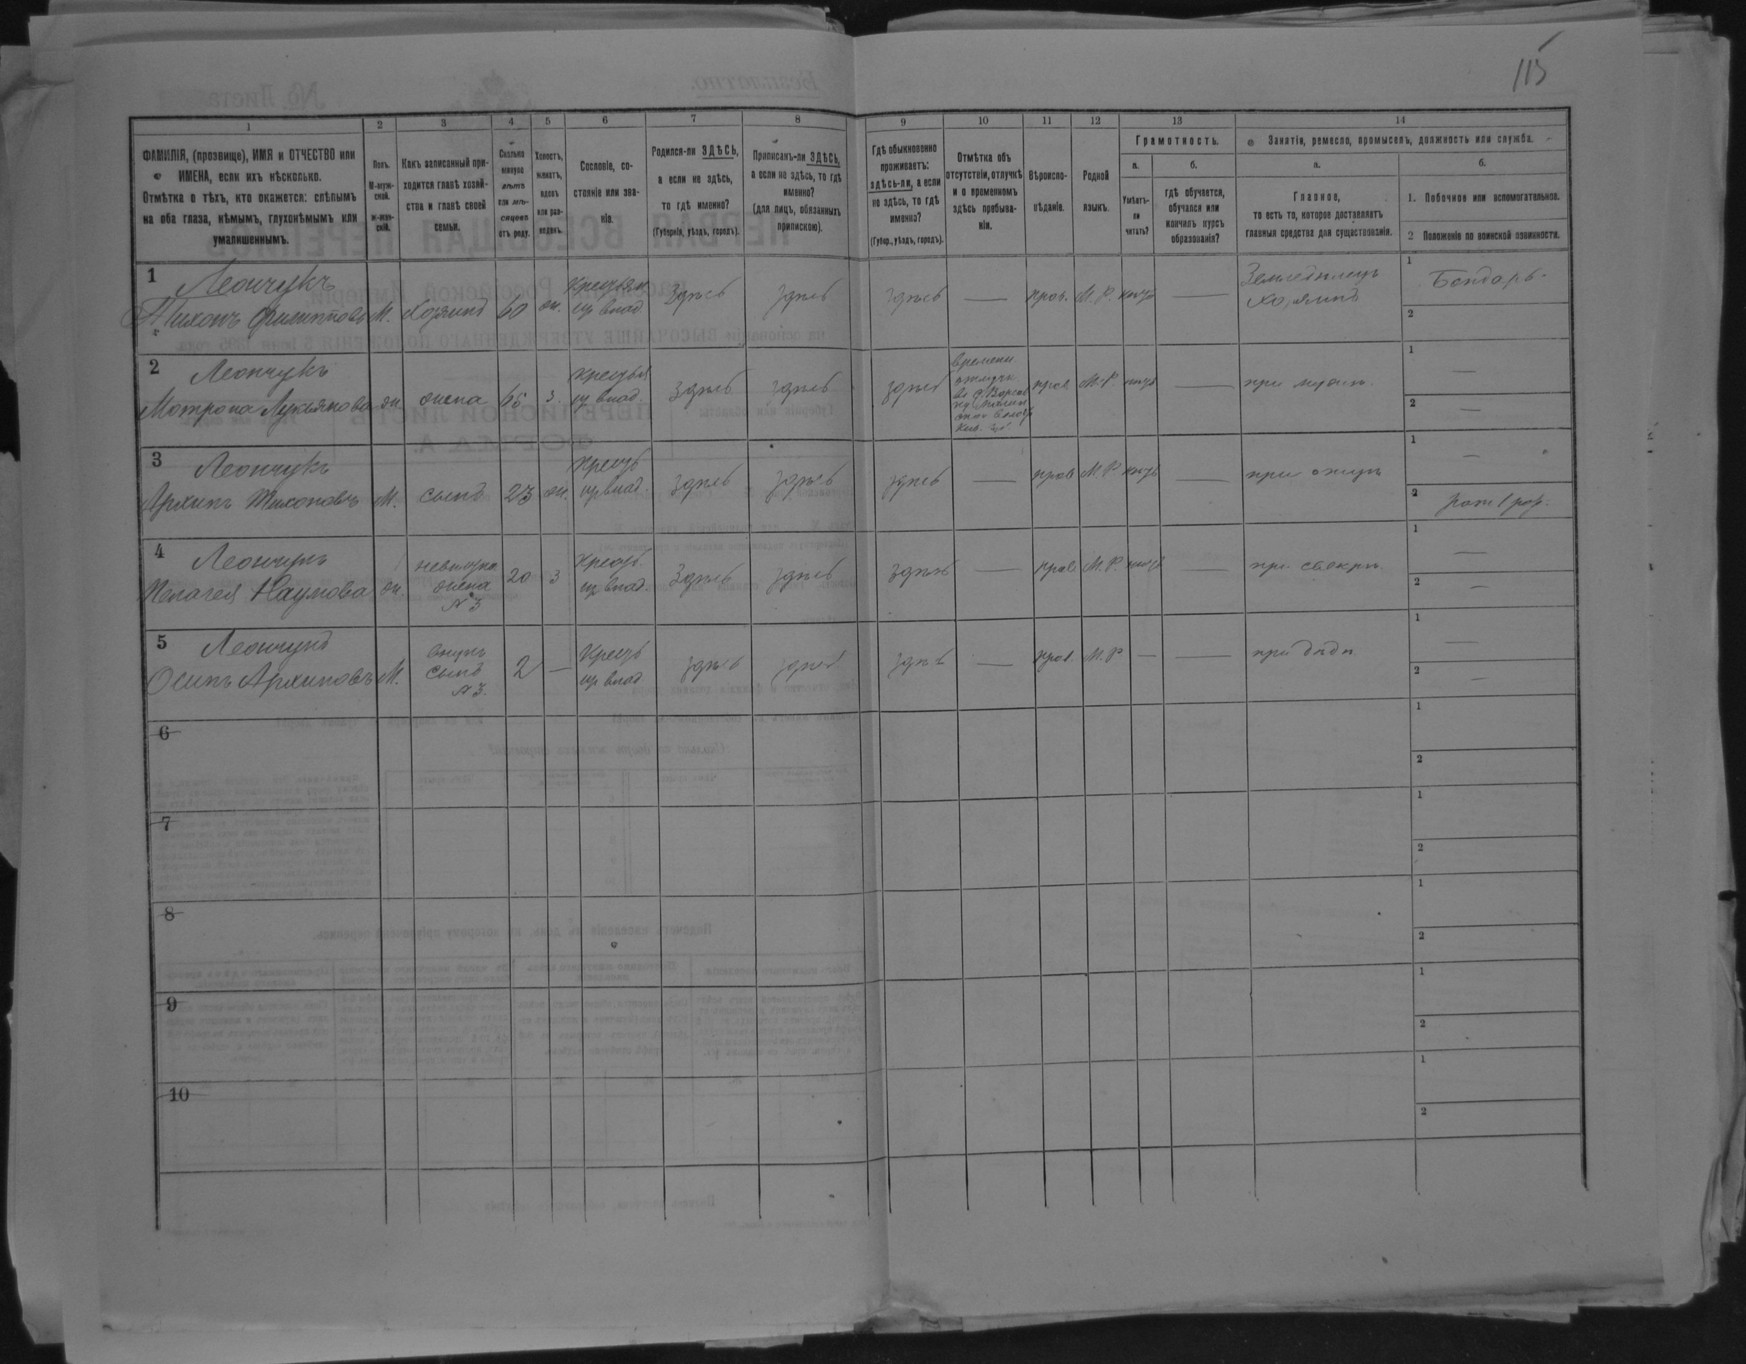 115
1
2
3
4
5
6
7
8
9
10
11
12
13
14
ФАМИЛІЯ, (прозвище), ИМЯ и ОТЧЕСТВО или
ИМЕНА, если ихъ нѣсколько.
Отмѣтка о тѣхъ, кто окажется: слѣпымъ
на оба глаза, нѣмымъ, глухонѣмымъ или
умалишеннымъ.
Полъ.
М-муж-
ской.
Ж-жен-
скій.
Какъ записанный при-
ходится главѣ хозяй-
ства и главѣ своей
семьи.
Сколько
минуло
лѣтъ
или мѣ-
сяцевъ
отъ роду.
Холостъ,
женатъ,
вдовъ
или раз-
веденъ.
Сословіе, со-
стояніе или зва-
ніе.
Родился-ли ЗДѢСЬ,
а если не здѣсь,
то гдѣ именно?
(Губернія, уѣздъ, городъ).
Приписанъ-ли ЗДѢСЬ,
а если не здѣсь, то гдѣ
именно?
(для лицъ, обязанныхъ
припискою).
Гдѣ обыкновенно
проживаетъ:
здѣсь-ли, а если
не здѣсь, то гдѣ
именно?
(Губер., уѣздъ, городъ).
Отмѣтка объ
отсутствіи, отлучкѣ
и о временномъ
здѣсь пребыва-
ніи.
Вѣроиспо-
вѣданіе.
Родной
языкъ.
Грамотность.
а.
Умѣетъ-
ли
читать?
б.
гдѣ обучается,
обучался или
кончилъ курсъ
образованія?
Занятіе, ремесло, промыселъ, должность или служба.
а.
Главное,
то есть то, которое доставляетъ
главныя средства для существованія.
б.
1. Побочное или вспомогательное.
2 Положеніе по воинской повинности.
1 Леончукъ
Тихонъ Филипповъ М. хозяинъ 60 ж. крестьян. здѣсь здѣсь здѣсь — прав. М.Р. нѣтъ — Земледѣлецъ
хозяинъ
1 Бондарь
2
2 Леончукъ
Матрона Лукьянова ж. жена 65 з. здѣсь здѣсь здѣсь
прав. М.Р. нѣтъ — при мужѣ
1 —
2 —
3 Леончукъ
Архипъ Тихоновъ М. сынъ 23 ж. здѣсь здѣсь здѣсь — прав М.Р. нѣтъ — при отцѣ
1 —
2
4 Леончукъ
Пелагея Наумова ж. невѣстка
жена
№ 3
20 з здѣсь здѣсь здѣсь — прав М.Р. нѣтъ — при свекрѣ
1 —
2 —
5 Леончукъ
Осипъ Архиповъ М. внукъ
сынъ
№ 3.
2 — здѣсь здѣсь здѣсь — прав. М.Р — — при дѣдѣ
1 —
2 —
6
1
2
7
1
2
8
1
2
9
1
2
10
1
2